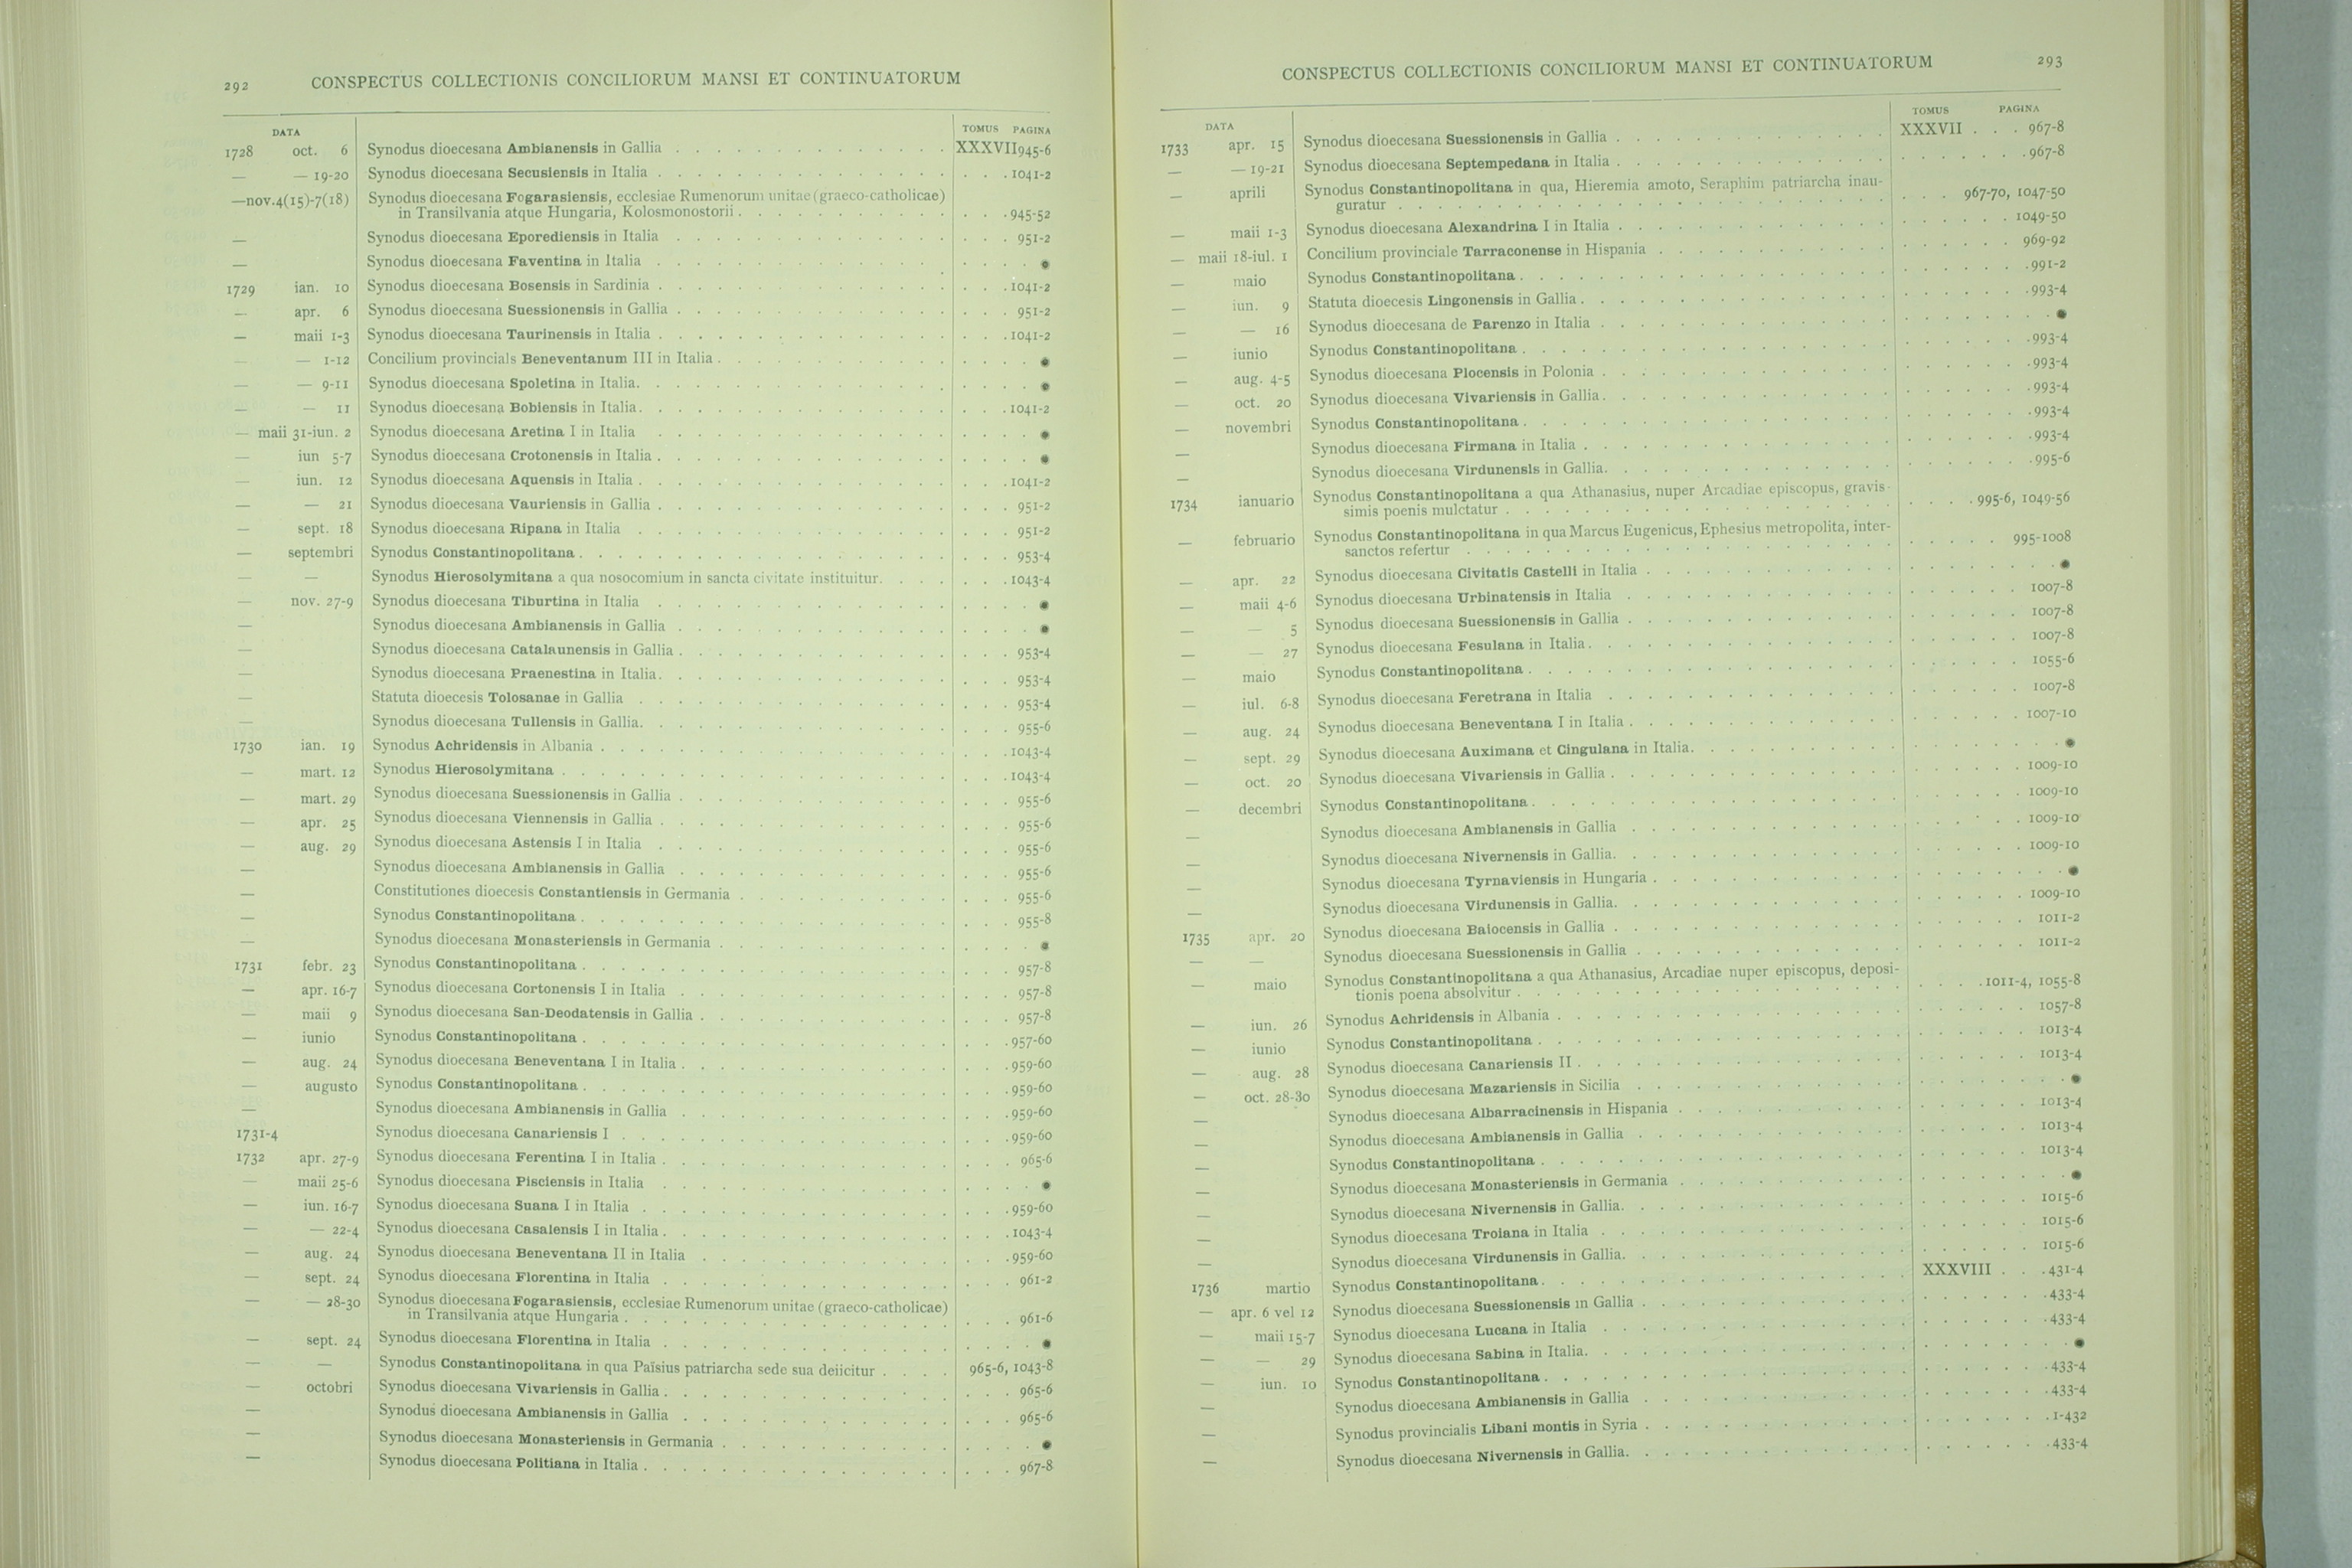 292 CONSPECTUS COLLECTIONIS CONCILIORUM MANSI ET CONTINUATORUM
DATA TOMUS PAGINA
1728 oct. 6 Synodus dioecesana Ambianensis in Gallia . . . XXXVII 945-6
— — 19-20 Synodus dioecesana Secusiensis in Italia . . . 1041-2
—nov.4(15)-7(18) Synodus dioecesana Fogarasiensis, ecclesiae Rumenorum unitae (graeco-catholicae)
in Transilvania atque Hungaria, Kolosmonostorii . . . 945-52
— Synodus dioecesana Eporediensis in Italia . . . 951-2
— Synodus dioecesana Faventina in Italia . . . ●
1729 ian. 10 Synodus dioecesana Bosensis in Sardinia . . . 1041-2
— apr. 6 Synodus dioecesana Suessionensis in Gallia . . . 951-2
— maii 1-3 Synodus dioecesana Taurinensis in Italia . . . 1041-2
— — 1-12 Concilium provincials Beneventanum III in Italia . . . ●
— — 9-11 Synodus dioecesana Spoletina in Italia. . . . ●
— — 11 Synodus dioecesana Bobiensis in Italia. . . . 1041-2
— maii 31-iun. 2 Synodus dioecesana Aretina I in Italia . . . ●
— iun 5-7 Synodus dioecesana Crotonensis in Italia . . . ●
— iun. 12 Synodus dioecesana Aquensis in Italia . . . 1041-2
— — 21 Synodus dioecesana Vauriensis in Gallia . . . 951-2
— sept. 18 Synodus dioecesana Ripana in Italia . . . 951-2
— septembri Synodus Constantinopolitana . . . 953-4
— — Synodus Hierosolymitana a qua nosocomium in sancta civitate instituitur. . . . 1043-4
— nov. 27-9 Synodus dioecesana Tiburtina in Italia . . . ●
— Synodus dioecesana Ambianensis in Gallia . . . ●
— Synodus dioecesana Catalaunensis in Gallia . . . 953-4
— Synodus dioecesana Praenestina in Italia. . . . 953-4
— Statuta dioecesis Tolosanae in Gallia . . . 953-4
— Synodus dioecesana Tullensis in Gallia. . . . 955-6
1730 ian. 19 Synodus Achridensis in Albania . . . 1043-4
— mart. 12 Synodus Hierosolymitana . . . 1043-4
— mart. 29 Synodus dioecesana Suessionensis in Gallia . . . 955-6
— apr. 25 Synodus dioecesana Viennensis in Gallia . . . 955-6
— aug. 29 Synodus dioecesana Astensis I in Italia . . . 955-6
— Synodus dioecesana Ambianensis in Gallia . . . 955-6
— Constitutiones dioecesis Constantiensis in Germania . . . 955-6
— Synodus Constantinopolitana . . . 955-8
— Synodus dioecesana Monasteriensis in Germania . . . ●
1731 febr. 23 Synodus Constantinopolitana . . . 957-8
— apr. 16-7 Synodus dioecesana Cortonensis I in Italia . . . 957-8
— maii 9 Synodus dioecesana San-Deodatensis in Gallia . . . 957-8
— iunio Synodus Constantinopolitana . . . 957-60
— aug. 24 Synodus dioecesana Beneventana I in Italia . . . 959-60
— augusto Synodus Constantinopolitana . . . 959-60
— Synodus dioecesana Ambianensis in Gallia . . . 959-60
1731-4 Synodus dioecesana Canariensis I . . . 959-60
1732 apr. 27-9 Synodus dioecesana Ferentina I in Italia . . . 965-6
— maii 25-6 Synodus dioecesana Pisciensis in Italia . . . ●
— iun. 16-7 Synodus dioecesana Suana I in Italia . . . 959-60
— — 22-4 Synodus dioecesana Casalensis I in Italia . . . 1043-4
— aug. 24 Synodus dioecesana Beneventana II in Italia . . . 959-60
— sept. 24 Synodus dioecesana Florentina in Italia . . . 961-2
— — 28-30 Synodus dioecesana Fogarasiensis, ecclesiae Rumenorum unitae (graeco-catholicae)
in Transilvania atque Hungaria . . . 961-6
— sept. 24 Synodus dioecesana Florentina in Italia . . . ●
— — Synodus Constantinopolitana in qua Païsius patriarcha sede sua deiicitur . . . 965-6, 1043-8
— octobri Synodus dioecesana Vivariensis in Gallia . . . 965-6
— Synodus dioecesana Ambianensis in Gallia . . . 965-6
— Synodus dioecesana Monasteriensis in Germania . . . ●
— Synodus dioecesana Politiana in Italia . . . 967-8
CONSPECTUS COLLECTIONIS CONCILIORUM MANSI ET CONTINUATORUM 293
DATA TOMUS PAGINA
1733 apr. 15 Synodus dioecesana Suessionensis in Gallia . . . XXXVII . . . 967-8
— — 19-21 Synodus dioecesana Septempedana in Italia . . . 967-8
— aprili Synodus Constantinopolitana in qua, Hieremia amoto, Seraphim patriarcha inau-
guratur . . . 967-70, 1047-50
— maii 1-3 Synodus dioecesana Alexandrina I in Italia . . . 1049-50
— maii 18-iul. 1 Concilium provinciale Tarraconense in Hispania . . . 969-92
— maio Synodus Constantinopolitana . . . 991-2
— iun. 9 Statuta dioecesis Lingonensis in Gallia . . . 993-4
— — 16 Synodus dioecesana de Parenzo in Italia . . . ●
— iunio Synodus Constantinopolitana . . . 993-4
— aug. 4-5 Synodus dioecesana Plocensis in Polonia . . . 993-4
— oct. 20 Synodus dioecesana Vivariensis in Gallia. . . . 993-4
— novembri Synodus Constantinopolitana . . . 993-4
— Synodus dioecesana Firmana in Italia . . . 993-4
— Synodus dioecesana Virdunensis in Gallia. . . . 995-6
1734 ianuario Synodus Constantinopolitana a qua Athanasius, nuper Arcadiae episcopus, gravis-
simis poenis mulctatur . . . 995-6, 1049-56
— februario Synodus Constantinopolitana in qua Marcus Eugenicus, Ephesius metropolita, inter-
sanctos refertur . . . 995-1008
— apr. 22 Synodus dioecesana Civitatis Castelli in Italia . . . ●
— maii 4-6 Synodus dioecesana Urbinatensis in Italia . . . 1007-8
— — 5 Synodus dioecesana Suessionensis in Gallia . . . 1007-8
— — 27 Synodus dioecesana Fesulana in Italia. . . . 1007-8
— maio Synodus Constantinopolitana . . . 1055-6
— iul. 6-8 Synodus dioecesana Feretrana in Italia . . . 1007-8
— aug. 24 Synodus dioecesana Beneventana I in Italia . . . 1007-10
— sept. 29 Synodus dioecesana Auximana et Cingulana in Italia. . . . ●
— oct. 20 Synodus dioecesana Vivariensis in Gallia . . . 1009-10
— decembri Synodus Constantinopolitana . . . 1009-10
— Synodus dioecesana Ambianensis in Gallia . . . 1009-10
— Synodus dioecesana Nivernensis in Gallia. . . . 1009-10
— Synodus dioecesana Tyrnaviensis in Hungaria . . . ●
— Synodus dioecesana Virdunensis in Gallia. . . . 1009-10
1735 apr. 20 Synodus dioecesana Baiocensis in Gallia . . . 1011-2
— — Synodus dioecesana Suessionensis in Gallia . . . 1011-2
— maio Synodus Constantinopolitana a qua Athanasius, Arcadiae nuper episcopus, deposi-
tionis poena absolvitur . . . 1011-4, 1055-8
— iun. 26 Synodus Achridensis in Albania . . . 1057-8
— iunio Synodus Constantinopolitana . . . 1013-4
— aug. 28 Synodus dioecesana Canariensis II . . . 1013-4
— oct. 28-30 Synodus dioecesana Mazariensis in Sicilia . . . ●
— Synodus dioecesana Albarracinensis in Hispania . . . 1013-4
— Synodus dioecesana Ambianensis in Gallia . . . 1013-4
— Synodus Constantinopolitana . . . 1013-4
— Synodus dioecesana Monasteriensis in Germania . . . ●
— Synodus dioecesana Nivernensis in Gallia. . . . 1015-6
— Synodus dioecesana Troiana in Italia . . . 1015-6
— Synodus dioecesana Virdunensis in Gallia. . . . 1015-6
1736 martio Synodus Constantinopolitana . . . XXXVIII . . . 431-4
— apr. 6 vel 12 Synodus dioecesana Suessionensis in Gallia . . . 433-4
— maii 15-7 Synodus dioecesana Lucana in Italia . . . 433-4
— — 29 Synodus dioecesana Sabina in Italia. . . . ●
— iun. 10 Synodus Constantinopolitana . . . 433-4
— Synodus dioecesana Ambianensis in Gallia . . . 433-4
— Synodus provincialis Libani montis in Syria . . . 1-432
— Synodus dioecesana Nivernensis in Gallia. . . . 433-4